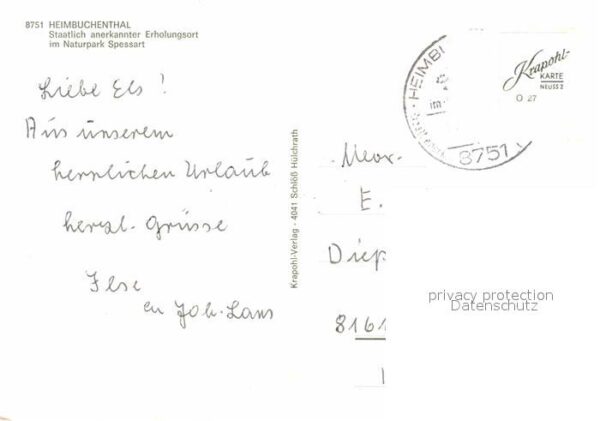 8751 HEIMBUCHENTHAL
Staatlich anerkannter Erholungsort
im Naturpark Spessart
Liebe Els !
Aus unserem
herrlichen Urlaub
herzl. Grüsse
Ilse
en Joh. Lans
Krapohl-Verlag · 4041 Schloß Hülchrath
HEIMB
8751
Krapohl-
KARTE
NEUSS 2
O 27
Mevr.
E.
Diep
8161
privacy protection
Datenschutz